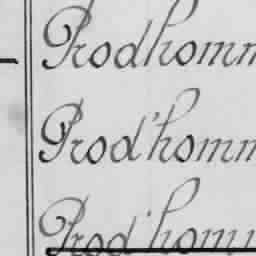 Prodhomm
Prod'homm
Prod'homm